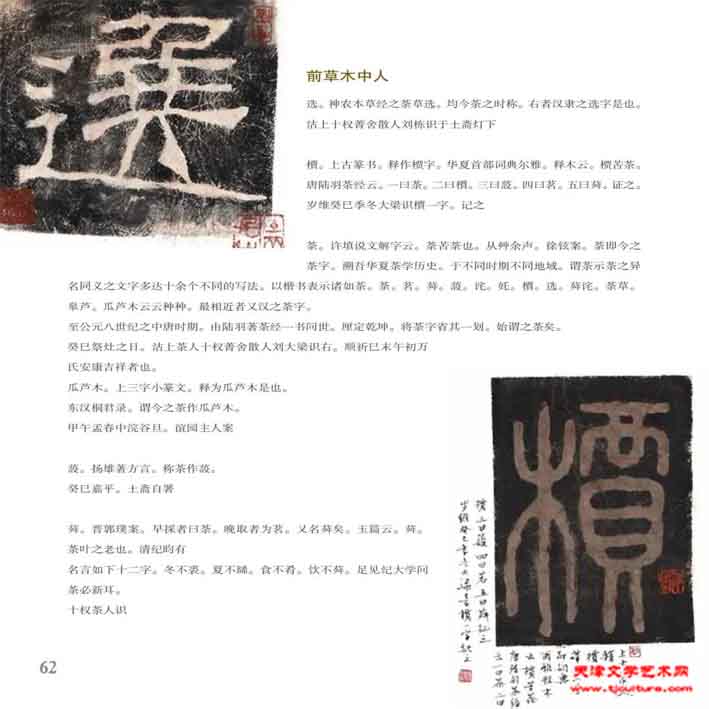 選
前草木中人
选。神农本草经之荼草选。均今荼之时称。右者汉隶之选字是也。
沽上十权菁舍散人刘栋识于土斋灯下
槚。上古篆书。释作槚字。华夏首部词典尔雅。释木云。槚苦荼。
唐陆羽茶经云。一曰茶。二曰槚。三曰蔎。四曰茗。五曰荈。证之。
岁维癸巳季冬大梁识槚一字。记之
荼。许填说文解字云。荼苦荼也。从艸余声。徐铉案。荼即今之
茶字。溯吾华夏茶学历史。于不同时期不同地域。谓荼示茶之异
名同义之文字多达十余个不同的写法。以楷书表示诸如茶。荼。茗。荈。蔎。诧。奼。槚。选。荈诧。荼草。
皋芦。瓜芦木云云种种。最相近者又汉之荼字。
至公元八世纪之中唐时期。由陆羽著茶经一书问世。厘定乾坤。将荼字省其一划。始谓之茶矣。
癸巳祭灶之日。沽上茶人十权菁舍散人刘大梁识右。顺祈巳末午初万
氏安康吉祥者也。
瓜芦木。上三字小篆文。释为瓜芦木是也。
东汉桐君录。谓今之茶作瓜芦木。
甲午孟春中浣谷旦。谊园主人案
蔎。扬雄著方言。称茶作蔎。
癸巳嘉平。土斋自署
荈。晋郭璞案。早採者曰茶。晚取者为茗。又名荈矣。玉篇云。荈。
茶叶之老也。清纪昀有
名言如下十二字。冬不裘。夏不睎。食不肴。饮不荈。足见纪大学问
茶必新耳。
十权茶人识
槚
槚三曰蔎四曰茗五曰荈证之
岁维癸巳季冬大梁识槚一字记之
62
天津文学艺术网
www.tjculture.com